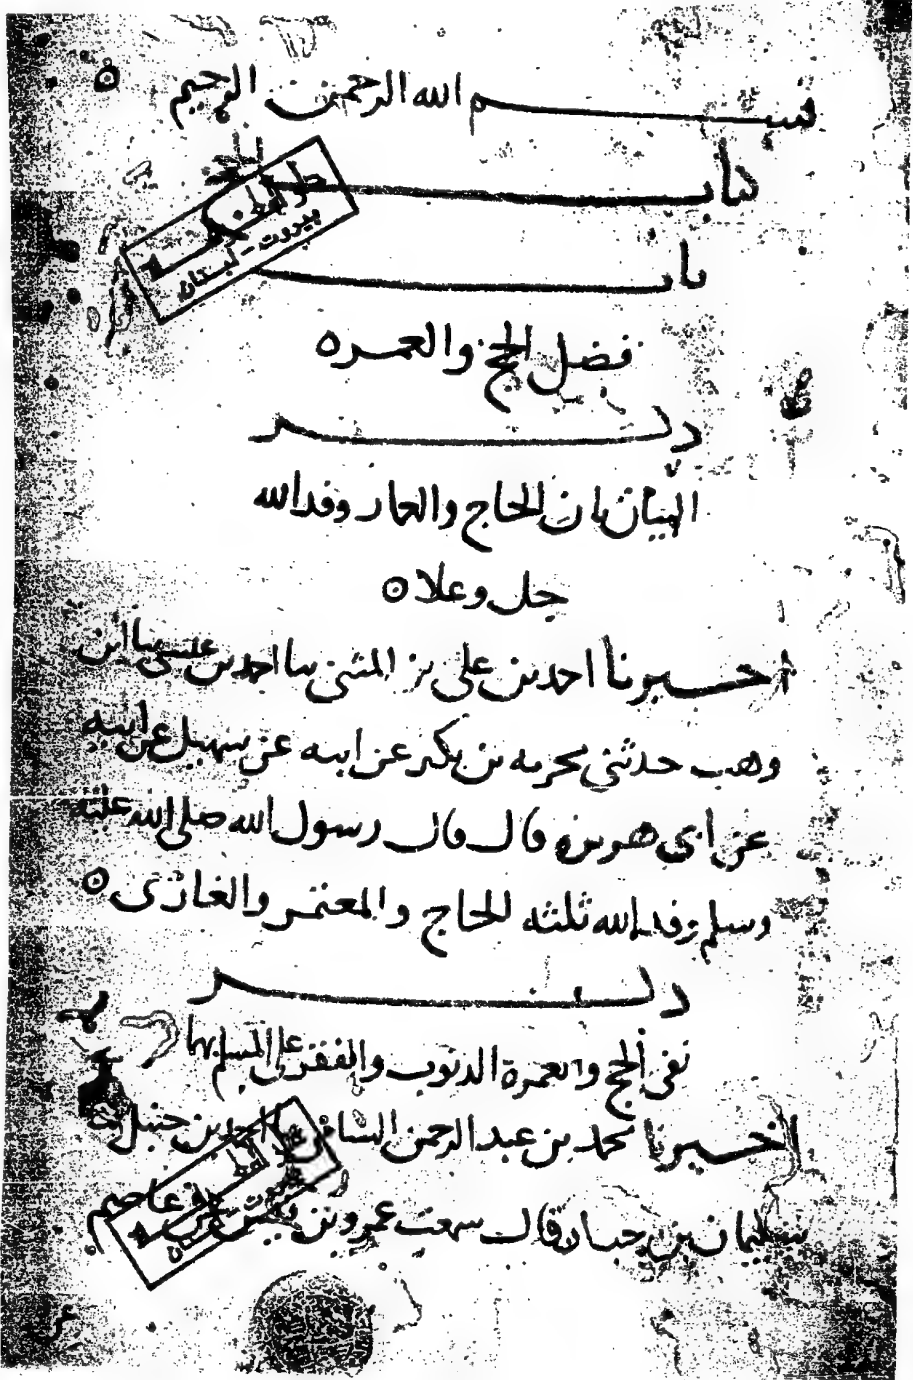 بسم الله الرحمن الرحيم ه
كتاب الحج
باب
فضل الحج والعمره ه
ذكر
البيان بان الحاج والعمار وفد الله
جل وعلا ه
اخبرنا احمد بن علي بن المثنى سا احمد بن عيسى سا ابن
وهب حدثني مخرمه بن بكير عن ابيه عن سهيل عن ابيه
عن ابى هريره قال قال رسول الله صلى الله عليه
وسلم وفد الله ثلثه الحاج والمعتمر والغازى ه
ذكر
نفى الحج والعمرة الذنوب والفقر على المسلم بهما
اخبرنا محمد بن عبد الرحمن السامي احمد بن حنبل
سليمان بن حيان قال سمعت عمرو بن قيس عن عاصم
بيروت - لبنان